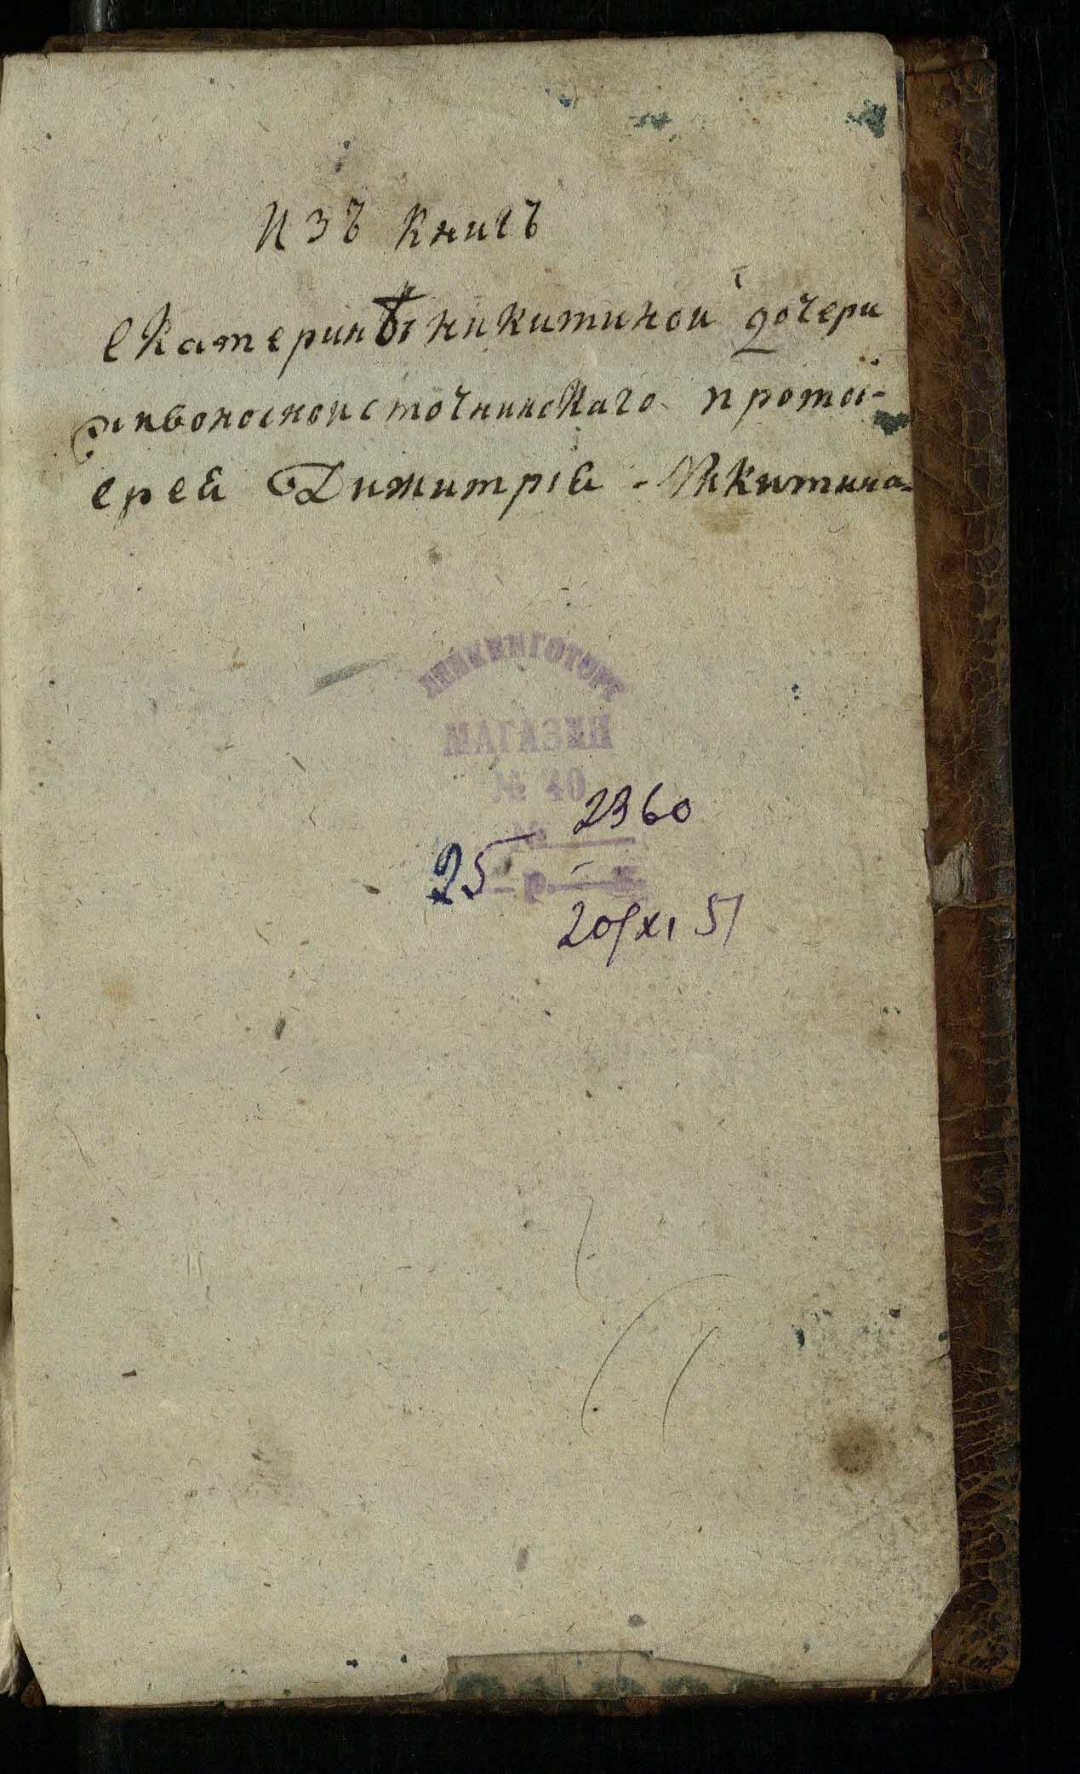 Изъ книгъ
Екатерины Никитиной дочери
Живоносноисточнинскаго протоі-
ерея Димитрія Никитина
ЛЕНКНИГОТОРГ
МАГАЗИН
№ 40
2360
25 - р. -
20/XI 51